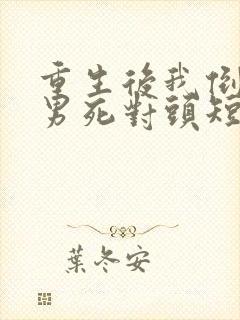 重生後我倒
男死對頭短
葉冬安